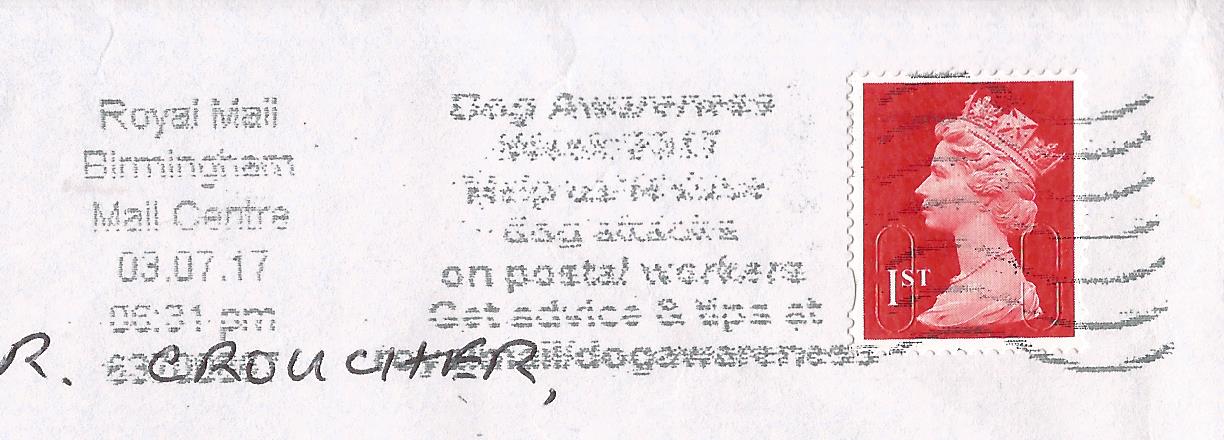 Royal Mail
Birmingham
Mail Centre
03.07.17
06:31 pm
Dog Awareness
Week 2017
Help us reduce
dog attacks
on postal workers
Get advice & tips at
royalmail/dogawareness
1ST
R. CROUCHER,